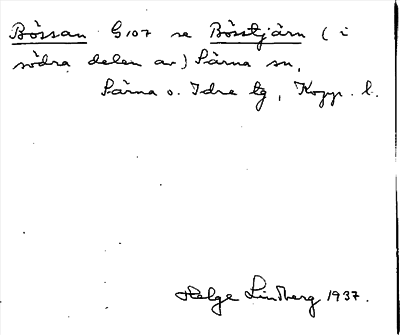 Bössan G107 se Bösstjärn (i
södra delen av) Särna sn,
Särna o. Idre tg, Kopp. l.
Helge Lindberg 1937.